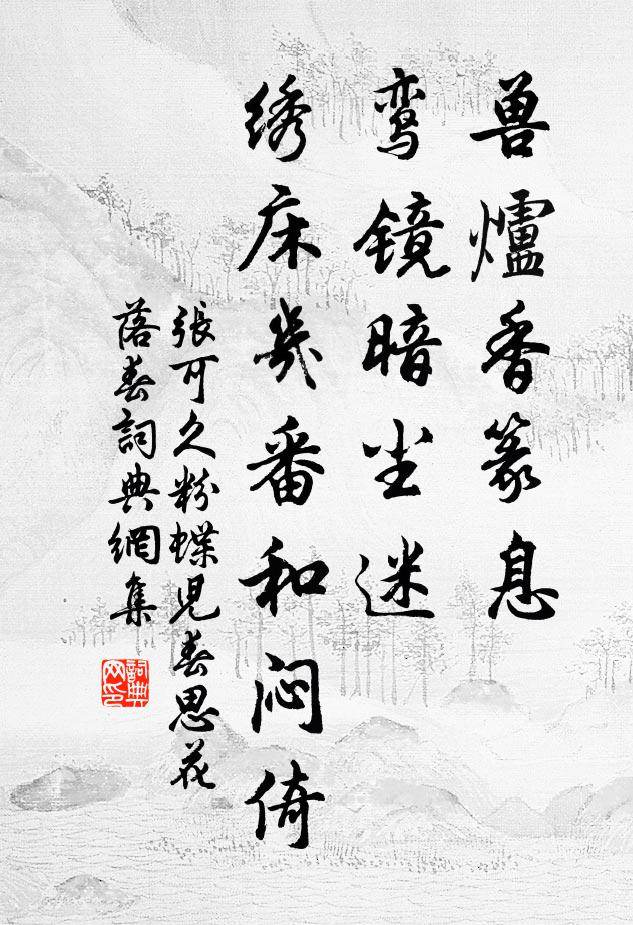 兽爐香篆息
鸾镜暗尘迷
绣床几番和闷倚
張可久粉蝶児春思花
落春詞典網集
詞典网印